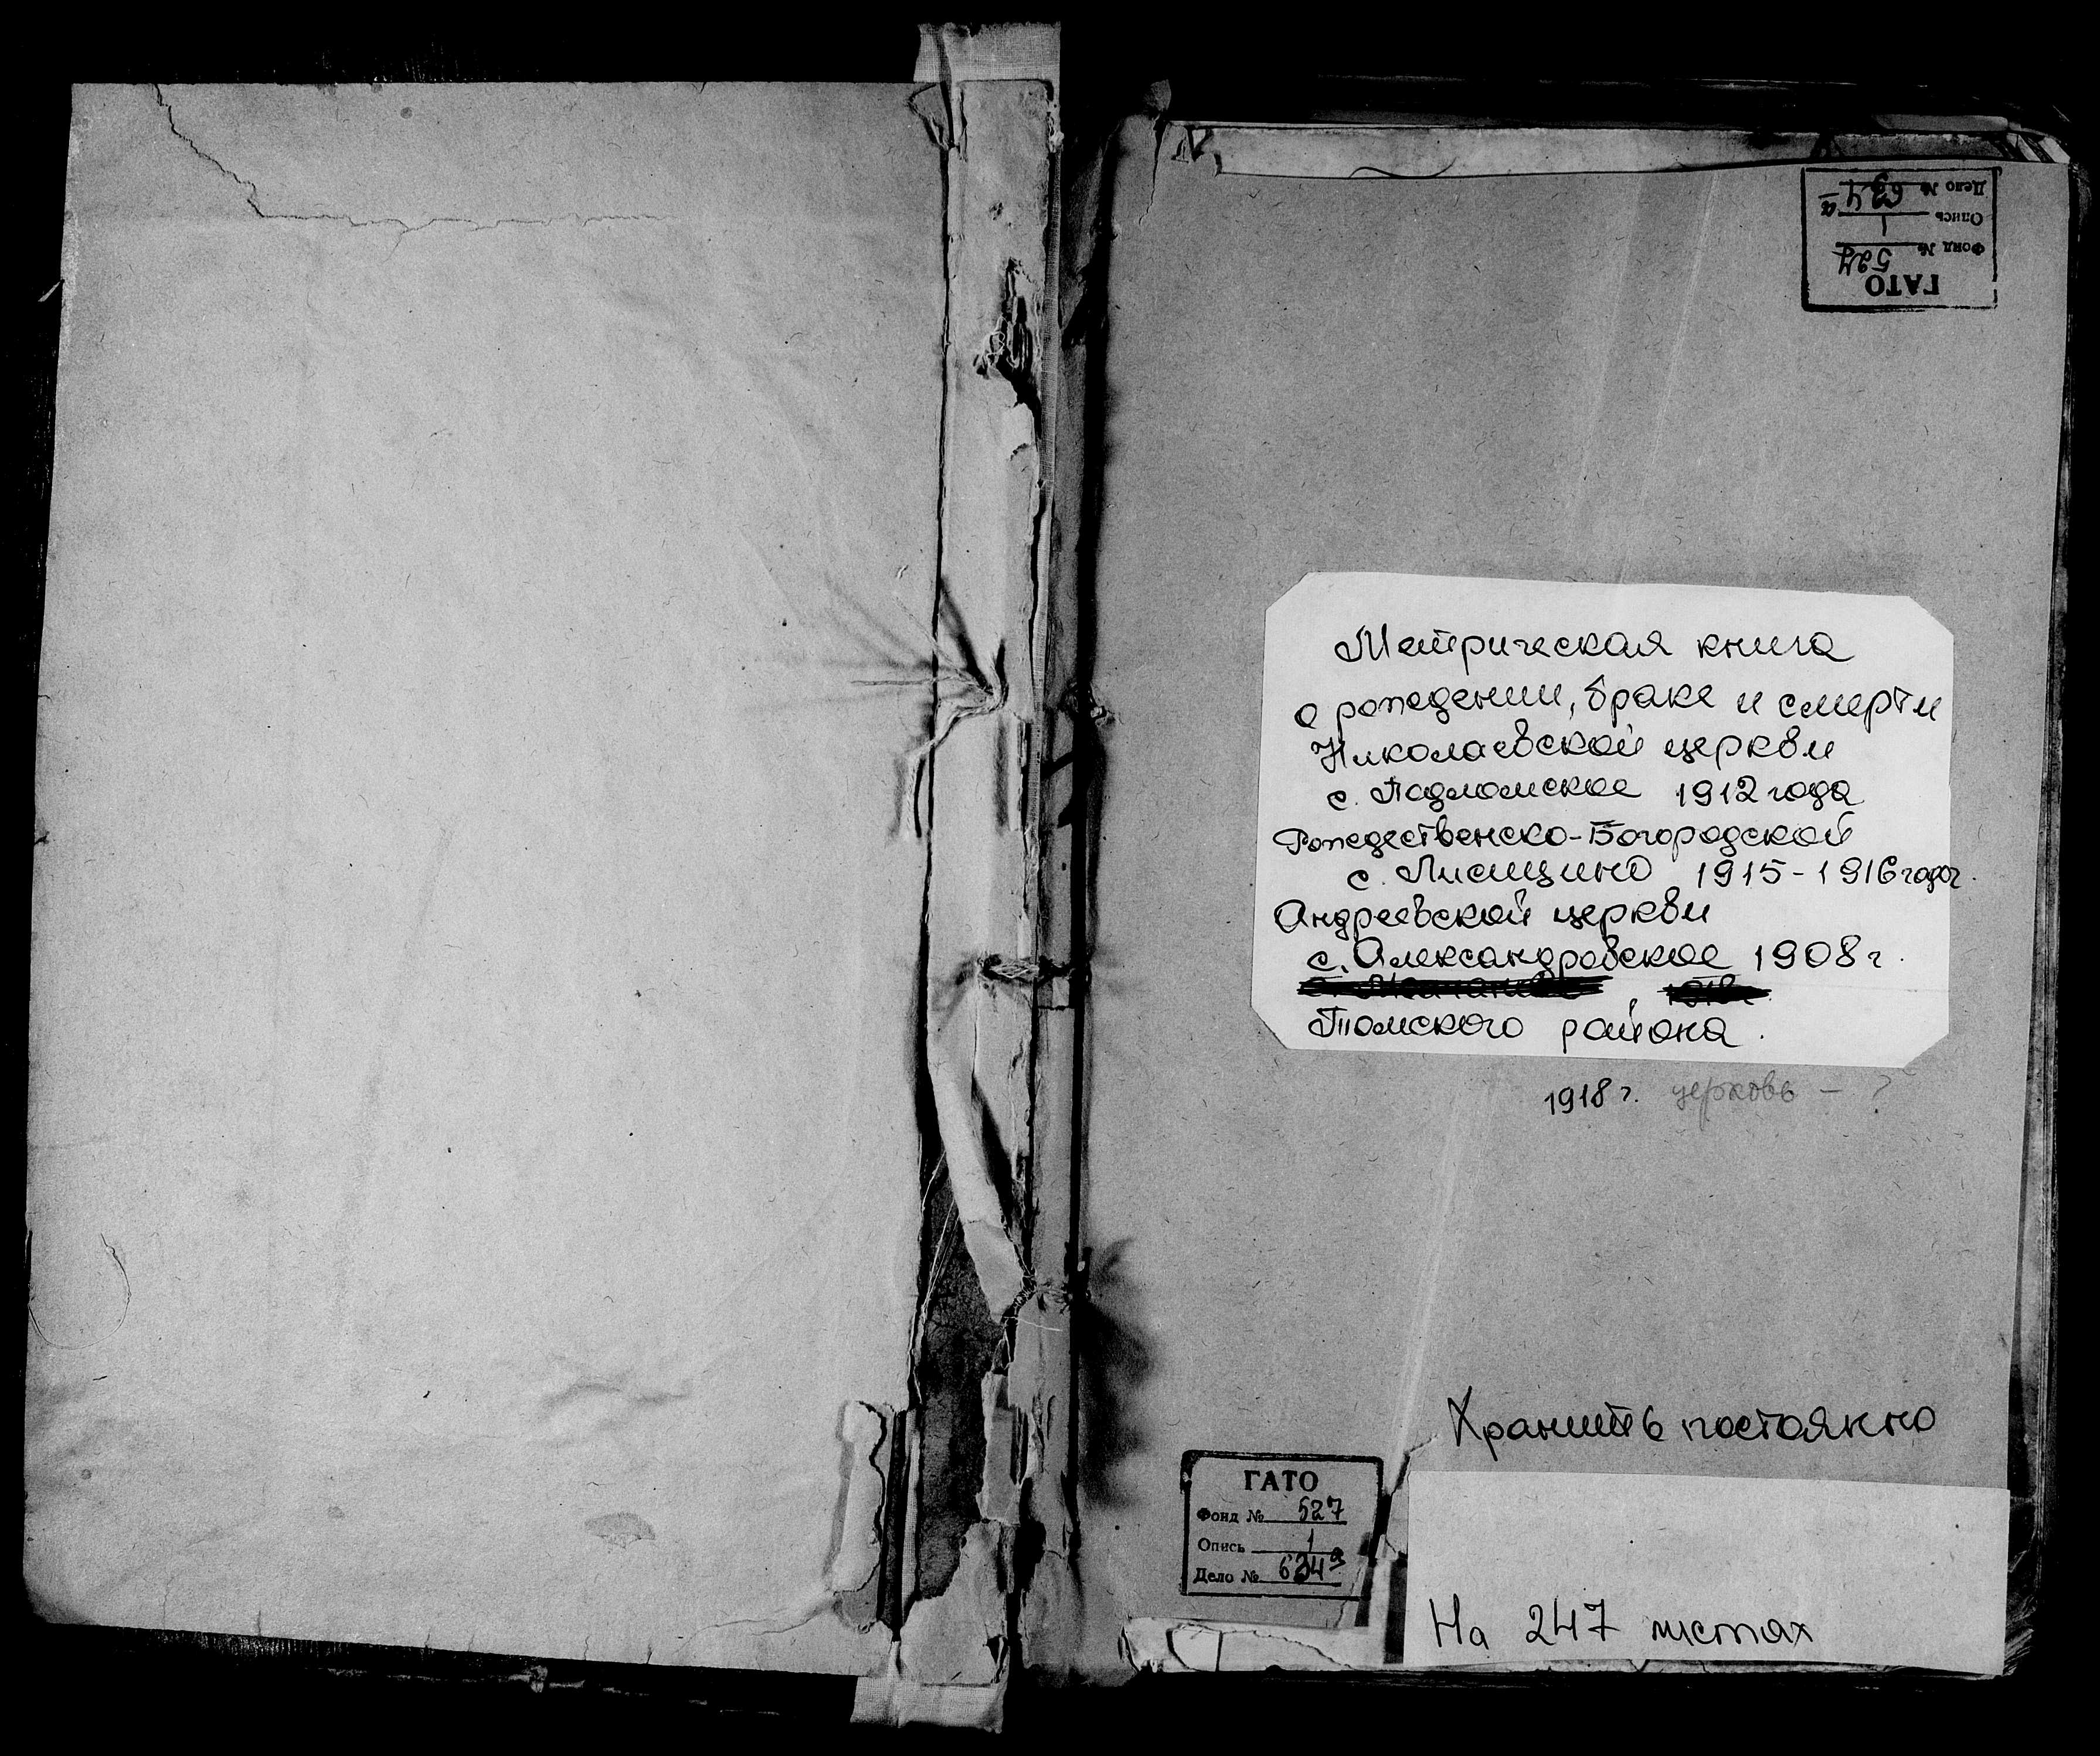 ГАТО
Фонд № 527
Опись 1
Дело № 634а
Метрическая книга
о рождении, браке и смерти
Николаевской церкви
с. Подломское 1912 года
Рождественско-Богородской
с. Лисицино 1915-1916 годы.
Андреевской церкви
с. Александровское 1908 г.
Томского района.
1918 г. церковь - ?
Хранить постоянно
ГАТО
Фонд № 527
Опись 1
Дело № 634а
На 247 листах